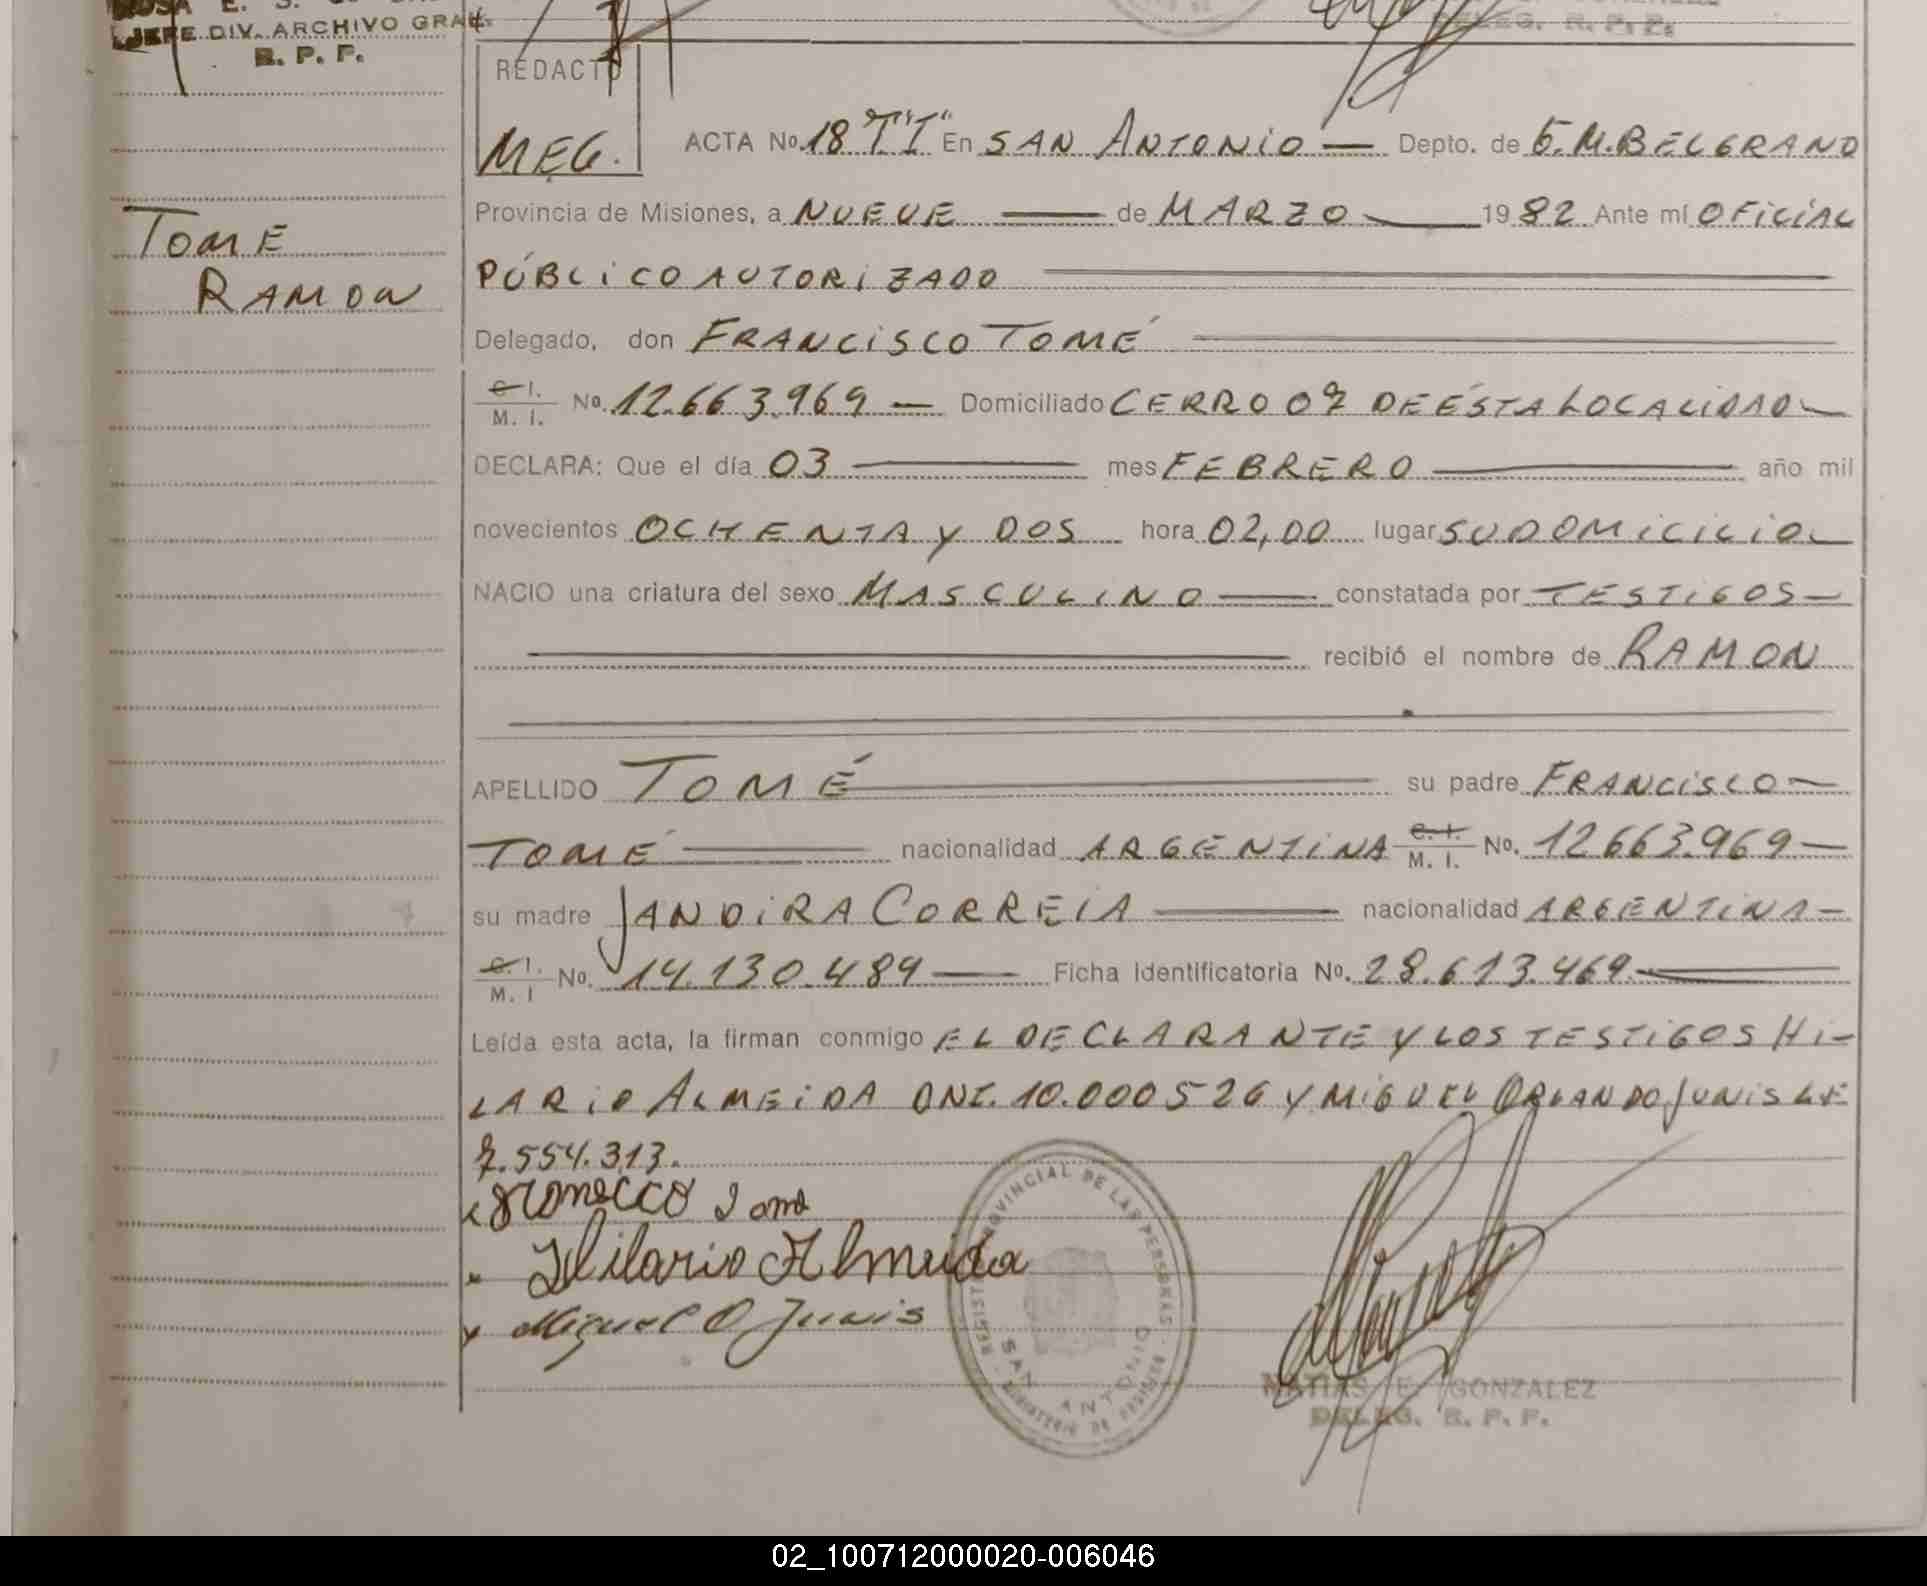 JEFE DIV. ARCHIVO GRAL.
R. P. P.
DELEG. R. P. P.
REDACTO
MEG.
ACTA No. 18 "TI" En SAN ANTONIO — Depto. de G. M. BELGRANO
Provincia de Misiones, a NUEVE — de MARZO — 1982 Ante mí OFICIAL
PÚBLICO AUTORIZADO
TOME
RAMON
Delegado, don FRANCISCO TOMÉ
C. I. / M. I. No. 12.663.969 — Domiciliado CERRO 07 DE ÉSTA LOCALIDAD —
DECLARA: Que el día 03 — mes FEBRERO — año mil
novecientos OCHENTA Y DOS hora 02,00 lugar SU DOMICICIO —
NACIO una criatura del sexo MASCULINO — constatada por TESTIGOS —
recibió el nombre de RAMON
APELLIDO TOMÉ — su padre FRANCISCO —
TOMÉ — nacionalidad ARGENTINA C. I. / M. I. No. 12663.969 —
su madre JANDIRA CORREIA — nacionalidad ARGENTINA —
C. I. / M. I No. 14.130.489 — Ficha Identificatoria No. 28.613.469. —
Leída esta acta, la firman conmigo EL DECLARANTE Y LOS TESTIGOS HI-
LARIO ALMEIDA DNI. 10.000526 Y MIGUEL ORLANDO JUNIS LE
7.554.313.
Hilario Almeida
Miguel O Junis
REGISTRO PROVINCIAL DE LAS PERSONAS
SAN ANTONIO
MATIAS E. GONZALEZ
DELEG. R. P. P.
02_100712000020-006046